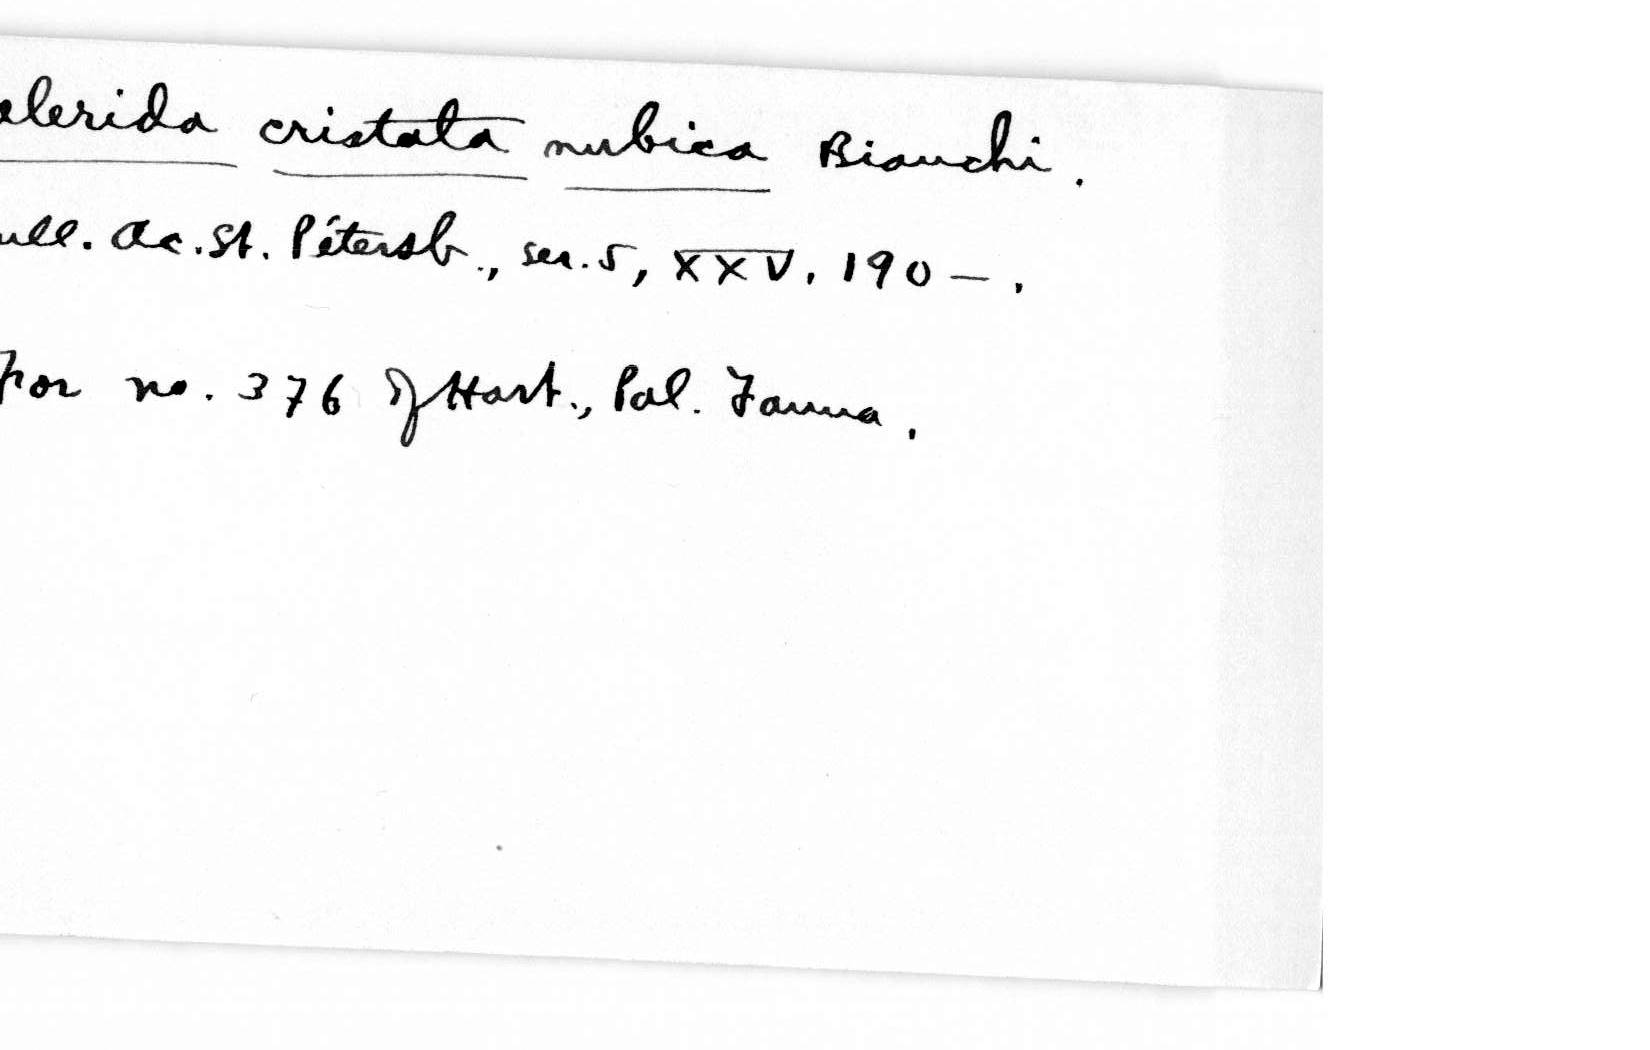 alerida cristata nubica Bianchi.
ull. Ac. St. Pétersb., ser. 5, XXV. 190—.
For no. 376 of Hart., Pal. Fauna.